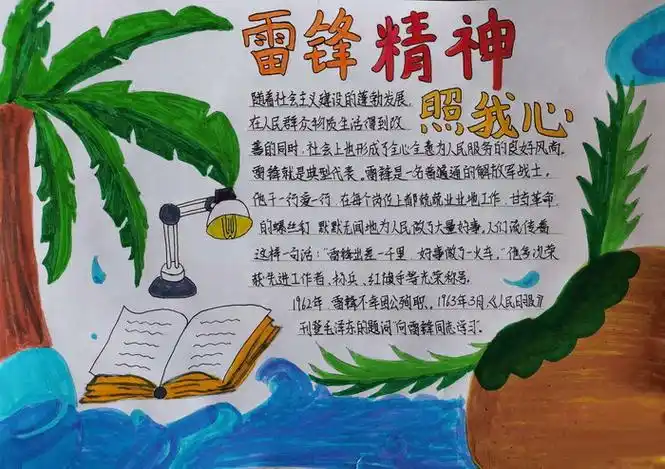 雷锋精神
照我心
随着社会主义建设的蓬勃发展,
在人民群众物质生活得到改
善的同时,社会上也形成了全心全意为人民服务的良好风尚。
雷锋就是典型代表。雷锋是一名普通的解放军战士,
他干一行爱一行,在每个岗位上都兢兢业业地工作,甘当革命
的螺丝钉,默默无闻地为人民做了大量好事,人们流传着
这样一句话:"雷锋出差一千里,好事做了一火车。"他多次荣
获先进工作者、标兵、红旗手等光荣称号。
1962年,雷锋不幸因公殉职。1963年3月,《人民日报》
刊登毛泽东的题词"向雷锋同志学习。